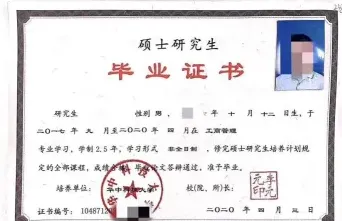 硕士研究生
毕业证书
研究生 性别 男, 年 十 月 十二 日生,于
二〇一七 年 九 月至二〇二〇 年 四 月在 工商管理
专业学习,学制2.5年,学习形式 非全日制 ,修完硕士研究生培养计划规
定的全部课程,成绩合格,毕业论文答辩通过,准予毕业。
培养单位: 华中科技大学 校(院、所)长:
证书编号: 10487120 二〇二〇 年 四 月 三 日